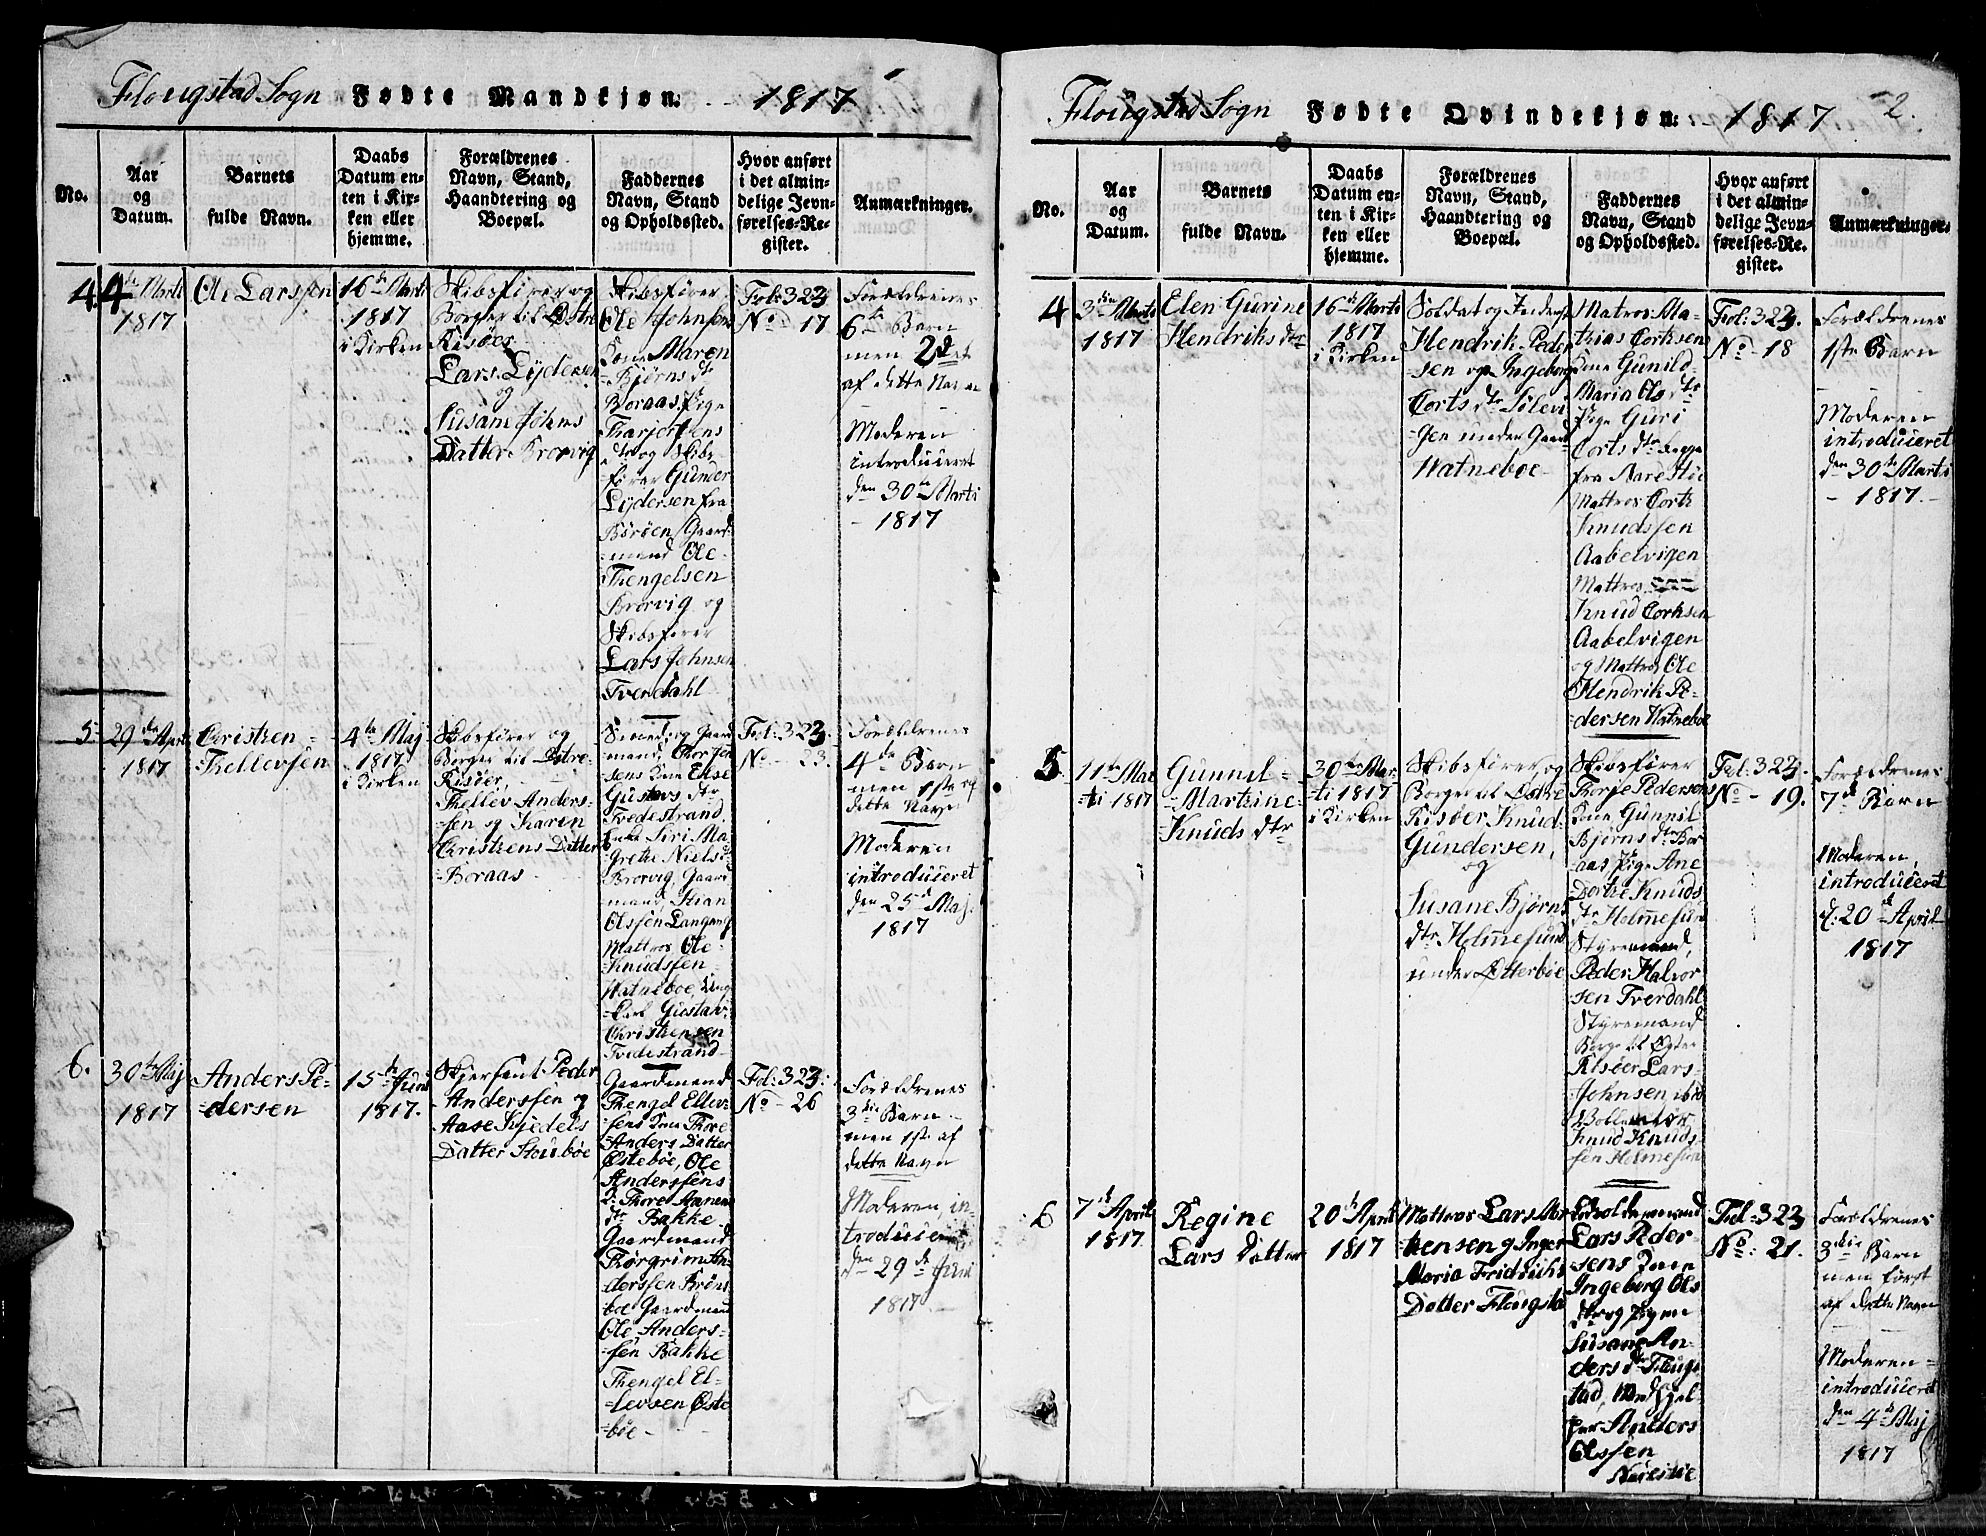 Flougstad Sogn Fødte Mandkjøn. 1817
No.
Aar
og
Datum.
Barnets
fulde Navn.
Daabs
Datum en-
ten i Kir-
ken eller
hjemme.
Forældrenes
Navn, Stand,
Haandtering og
Boepæl.
Faddernes
Navn, Stand
og Opholdssted.
Hvor anført
i det almin-
delige Jevn-
førelses-Re-
gister.
Anmærkninger.
4.
4de Marti
1817
Ole Larssen
16de Marti
1817
i Kirken
Skibsfører og
Borger til Østre
Risøer
Lars Lydersen
og
Susani Johns
Datter Brorvig
Skibsfører
Ole Johnsens
Kone Maren
Bjørns dtr
Boraas, Pige
Tharjer Jens
dtr og Skibs
fører Gunder
Lydersen fra
Børøen, Gaard-
=mand Ole
Thengelsen
Brorvig og
Skibsfører
Lars Johnsen
Tverdahl
Fol: 323
No 17
Forældrenes
6te Barn
men 2det
af dette Navn
Moderen
introduceret
den 30te Marti
- 1817
5
29de April
1817
Christen
Thellevsen
4de Maj
1817
i Kirken
Skibsfører og
Borger til Østre
Risøer,
Thellev Anders-
sen og Karen
Christens Datter
Boraas
Smed og Gaard
mand Thor Jon
sens Kone Else
Gustavs dtr
Tvedestrand
Enke Siri Ma-
grethe Niels d
Brorvig, Gaard
mand Stian
Olssen Langang
Mattros Ole
Knudssen
Watneboe, Ung-
-karl Gustav
Christensen
Tvedestrand
Fol: 323.
No - 23.
Forældrenes
4de Barn
men 1ste af
dette Navn
Moderen
introduceret
den 25de Maj
1817
6.
30te Maj
1817
Anders Pe-
=dersen
15de Juni
1817.
Skjerfant Peder
Anderssen og
Aase Kjedels
Datter Stoubøe
Gaardmand
Thengel Ellev-
sens Kone Thore
Anders Datter
Østebøe, Ole
Anderssens
K: Thore Annens
dtr Bakke
Gaardmand
Thorgrim An-
derssen Brøns
boe Gaardmand
Ole Anders-
-sen Bakke
Thengel El-
-levsen Øste
bøe -
Fol: 323:
No - 26
Forældrenes
3die Barn
men 1ste af
dette Navn
Moderen in-
troduceret
den 29de Juni
1817.
Flougstad Sogn Fødte Qvindekjøn. 1817 2.
No.
Aar
og
Datum.
Barnets
fulde Navn.
Daabs
Datum en-
ten i Kir-
ken eller
hjemme.
Forældrenes
Navn, Stand,
Haandtering og
Boepæl.
Faddernes
Navn, Stand
og Opholdssted.
Hvor anført
i det almin-
delige Jevn-
førelses-Re-
gister.
Anmærkninger.
4
3die Marti
1817
Elen Gurine
Hendriks dtr
16de Marti
1817
i Kirken
Soldat og Inderst
Hendrik Peder
sen og Ingeborg
Corts dtr Sølevi
gen under Gaard
Watneboe
Matros Ma-
thias Corksen
Kone Gunild
Maria Ols dtr
Pige Guri
Corts dtr begge
fra Aarestøe
Mattros Cort
Knudssen
Aabelvigen
Mattros
Knud Corksen
Aabelvigen
og Mattros Ole
Hendrik Pe-
dersen Watneboe
Fol: 323.
No - 18
Forældrenes
1ste Barn
Moderen
introduceret
den 30te Marti
- 1817. -
5.
11te Mar
-ti 1817
Gunnil
Martine
Knuds dtr
30te Mar
-ti 1817
i Kirken
Skibsfører og
Borger til Østre
Risøer Knud
Gundersen,
og
Susane Bjørns
dtr Holmesund
under Otterbøe
Skibsfører
Thorje Pedersens
Kone Gunnil
Bjørns dtr Bor
aas Pige Ane
Dorthe Knuds
dtr Holmesund
Styremand
Peder Halvor
sen Tverdahl
Styremand
Borger til Østre
Risøer Lars
Johnsen ibid
Knud Knuds-
sen Holmesund
Fol: 323.
No - 19.
Forældrenes
7de Barn
Moderen
introduceret
d: 20de April
1817
6
7de April
1817
Regine
Lars Datter
20de April
1817
Mattros Lars Mor
tensen og Inger
Maria Fridrichs
Datter Flougstad
Lars Peder-
sens Kone
Ingeborg Ols
dtr og Pigen
Susane An-
ders dtr Floug-
stad, Medhjel-
per Anders
Olssen
Fol: 323
No: 21.
Forældrenes
3die Barn
men først
af dette Navn
Moderen
introduceret
den 4de Maj
1817